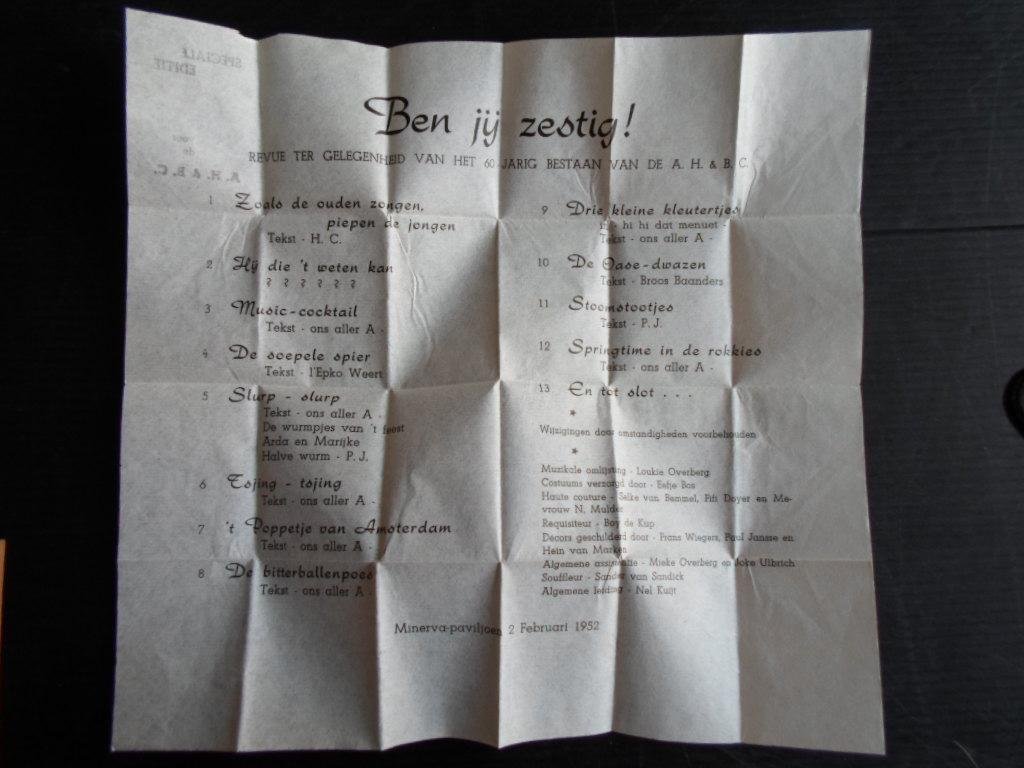 SPECIALE
EDITIE
voor
de
A. H. & B. C.
Ben jij zestig!
REVUE TER GELEGENHEID VAN HET 60 JARIG BESTAAN VAN DE A. H. & B. C.
1 Zoals de ouden zongen,
piepen de jongen
Tekst - H. C.
2 Hij die 't weten kan
? ? ? ? ? ?
3 Music-cocktail
Tekst - ons aller A -
4 De soepele spier
Tekst - l'Epko Weert
5 Slurp - slurp
Tekst - ons aller A -
De wurmpjes van 't feest
Arda en Marijke
Halve wurm - P. J.
6 Tsjing - tsjing
Tekst - ons aller A -
7 't Poppetje van Amsterdam
Tekst - ons aller A -
8 De bitterballenpoes
Tekst - ons aller A -
9 Drie kleine kleutertjes
- hi hi dat menuet -
Tekst - ons aller A -
10 De Oase-dwazen
Tekst - Broos Baanders
11 Stoomstootjes
Tekst - P. J.
12 Springtime in de rokkies
Tekst - ons aller A -
13 En tot slot . . .
*
Wijzigingen door omstandigheden voorbehouden
*
Muzikale omlijsting - Loukie Overberg
Costuums verzorgd door - Eefje Bos
Haute couture - Selke van Bemmel, Fifi Doyer en Me-
vrouw N. Mulder
Requisiteur - Boy de Kup
Decors geschilderd door - Frans Wiegers, Paul Jansse en
Hein van Marken
Algemene assistentie - Mieke Overberg en Joke Ulbrich
Souffleur - Sander van Sandick
Algemene leiding - Nel Kuijt
Minerva-paviljoen 2 Februari 1952